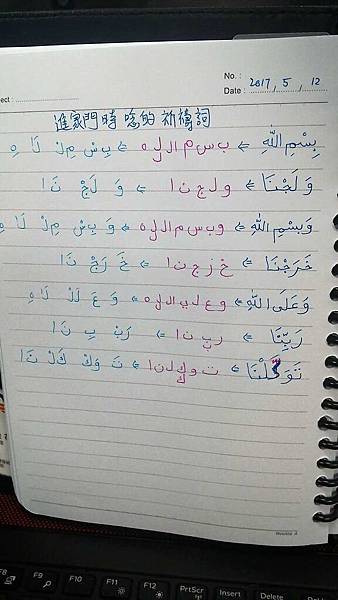 No. :
Date : 2017 , 5 , 12
ect :
進家門時唸的祈禱詞
بِسْمِ اللّٰهِ => ب س م ا ل ل ه => بِسْ مِلْ لَا هِ
وَلَجْنَا => و ل ج ن ا => وَ لَجْ نَا
وَبِسْمِ اللّٰهِ => و ب س م ا ل ل ه => وَ بِسْ مِلْ لَا هِ
خَرَجْنَا => خ ر ج ن ا => خَ رَجْ نَا
وَعَلَى اللّٰهِ => و ع ل ي ا ل ل ه => وَ عَ لَلْ لَا هِ
رَبِّنَا => ر ب ن ا => رَبْ بِ نَا
تَوَكَّلْنَا => ت و ك ل ن ا => تَ وَكْ كَلْ نَا
F8
F9
F10
F11
F12
PrtScr
Insert
Delete